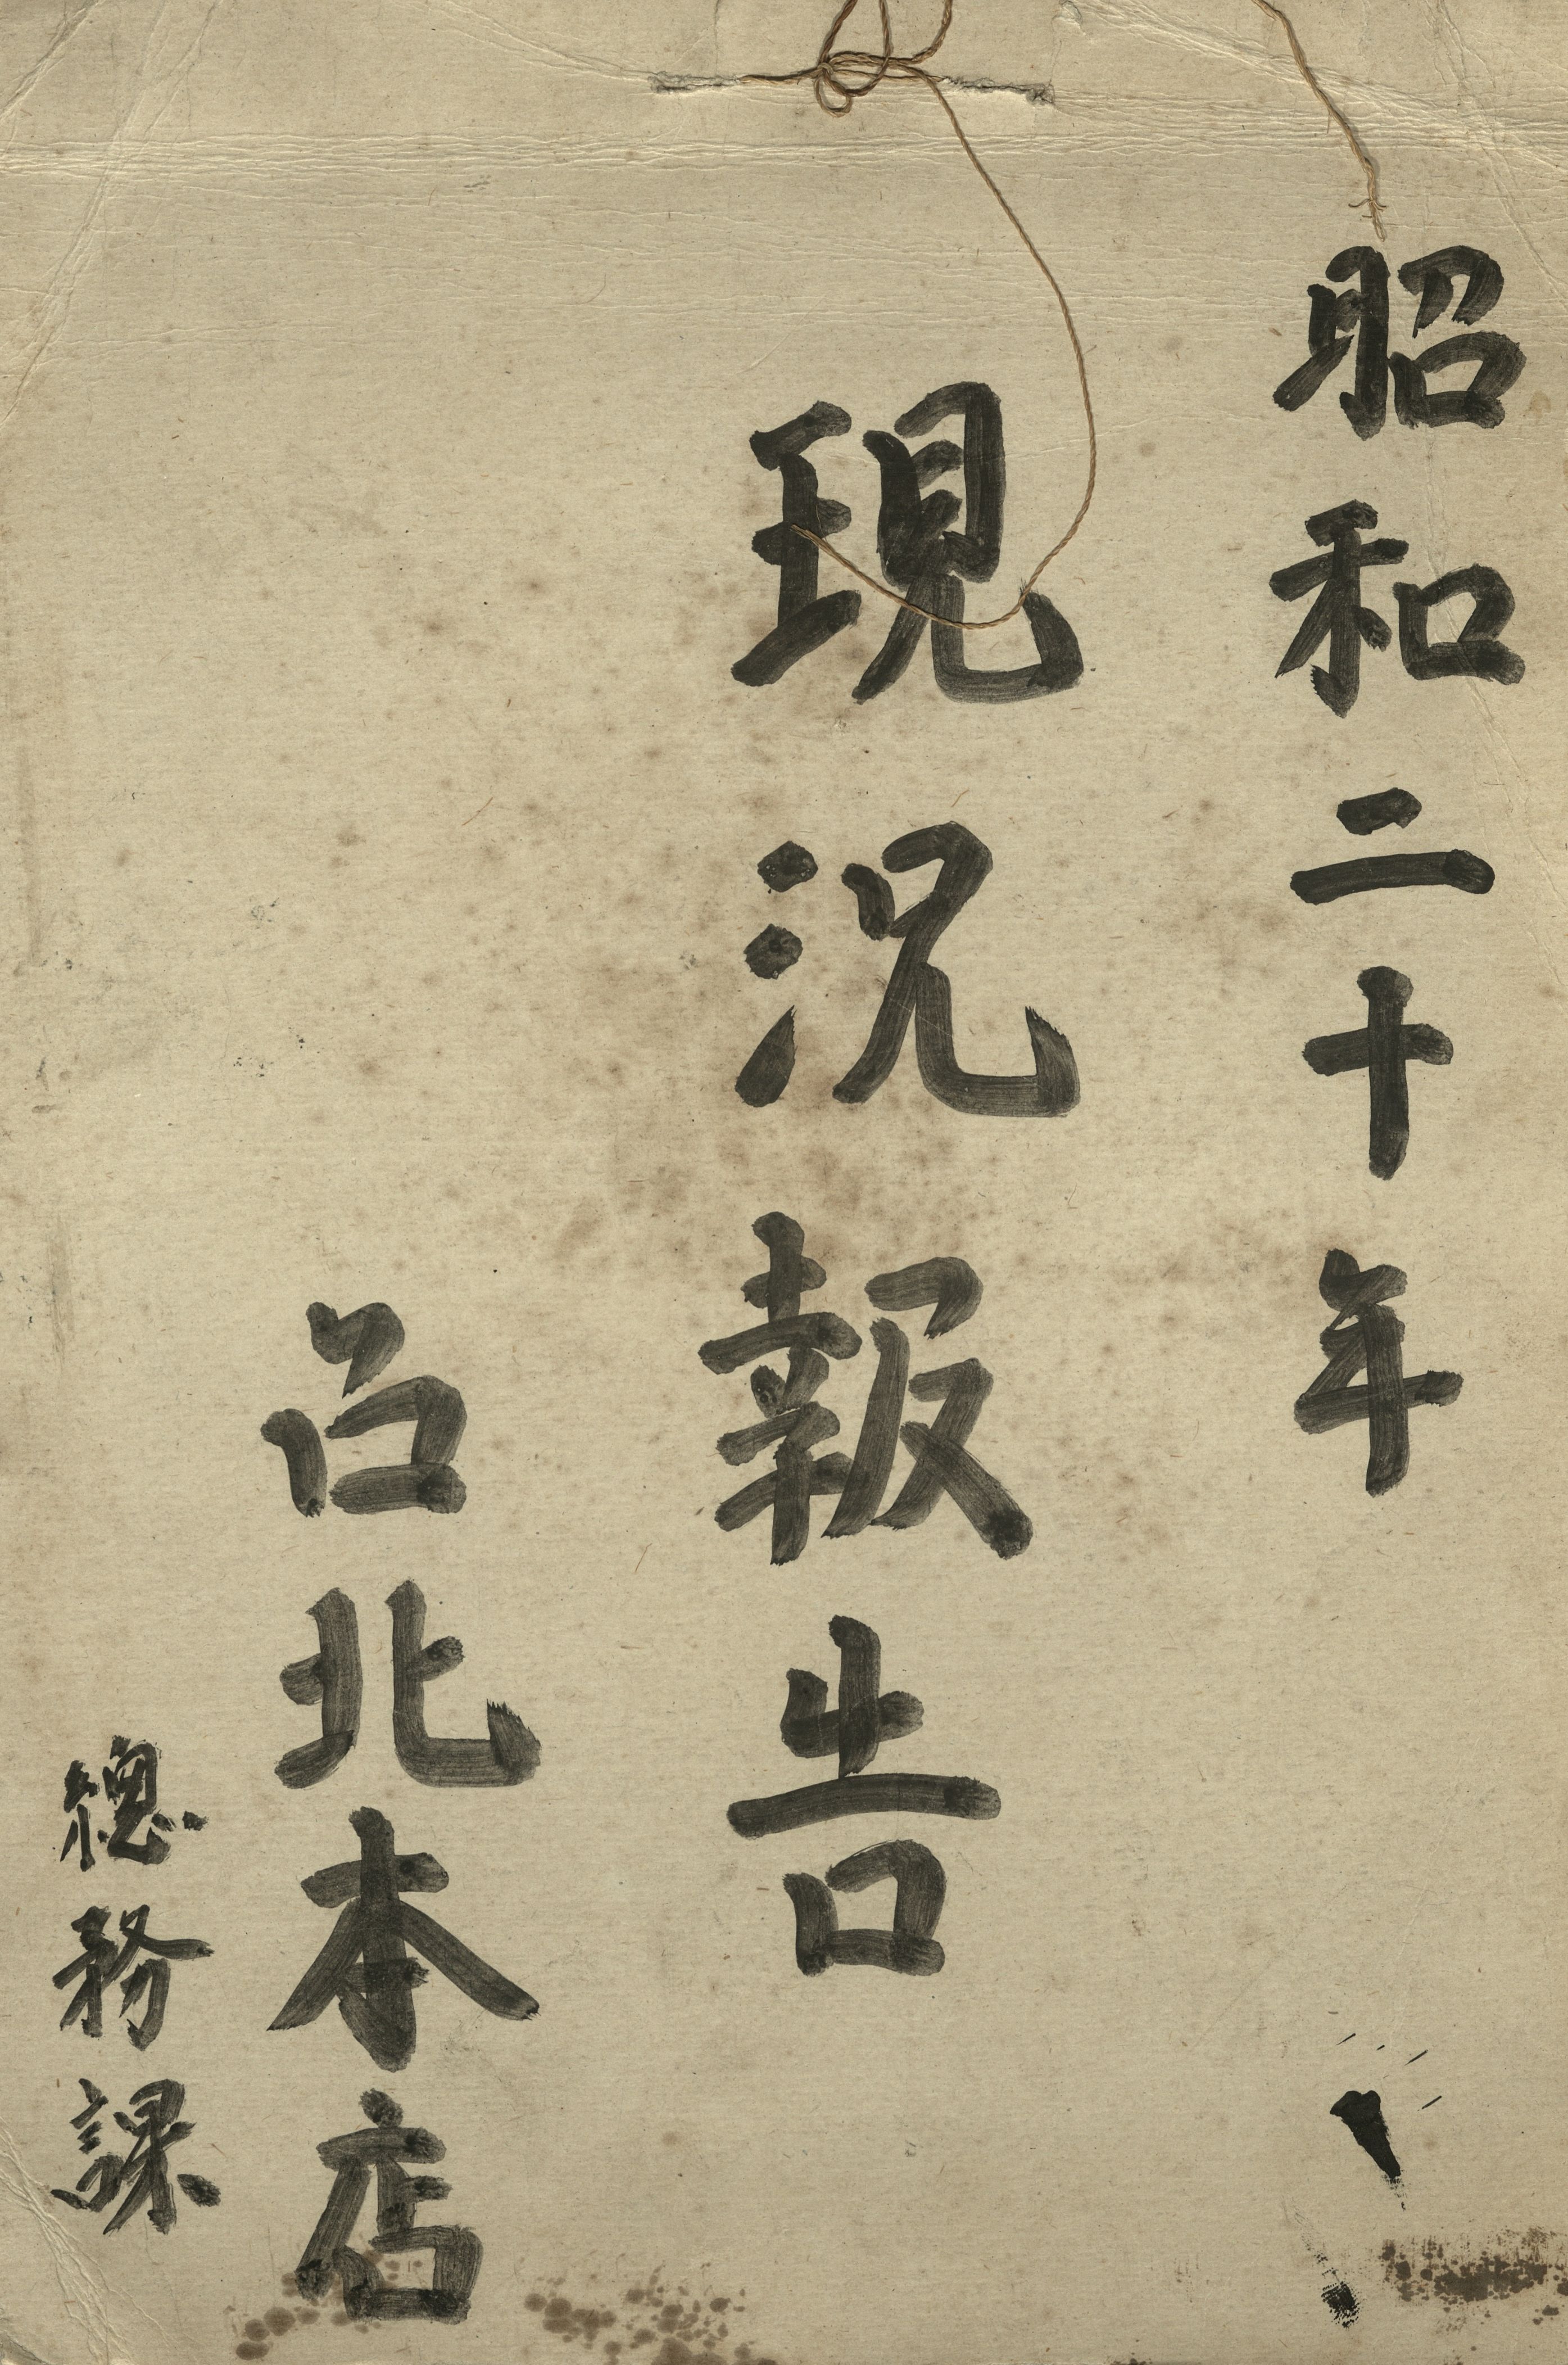 昭和二十年
現況報告
台北本店
總務課